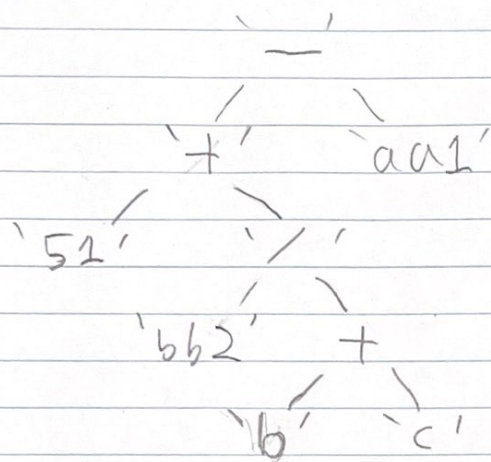 ‵—′
‵+′ ‵aa1′
‵51′ ‵/′
‵bb2′ +
‵b′ ‵c′